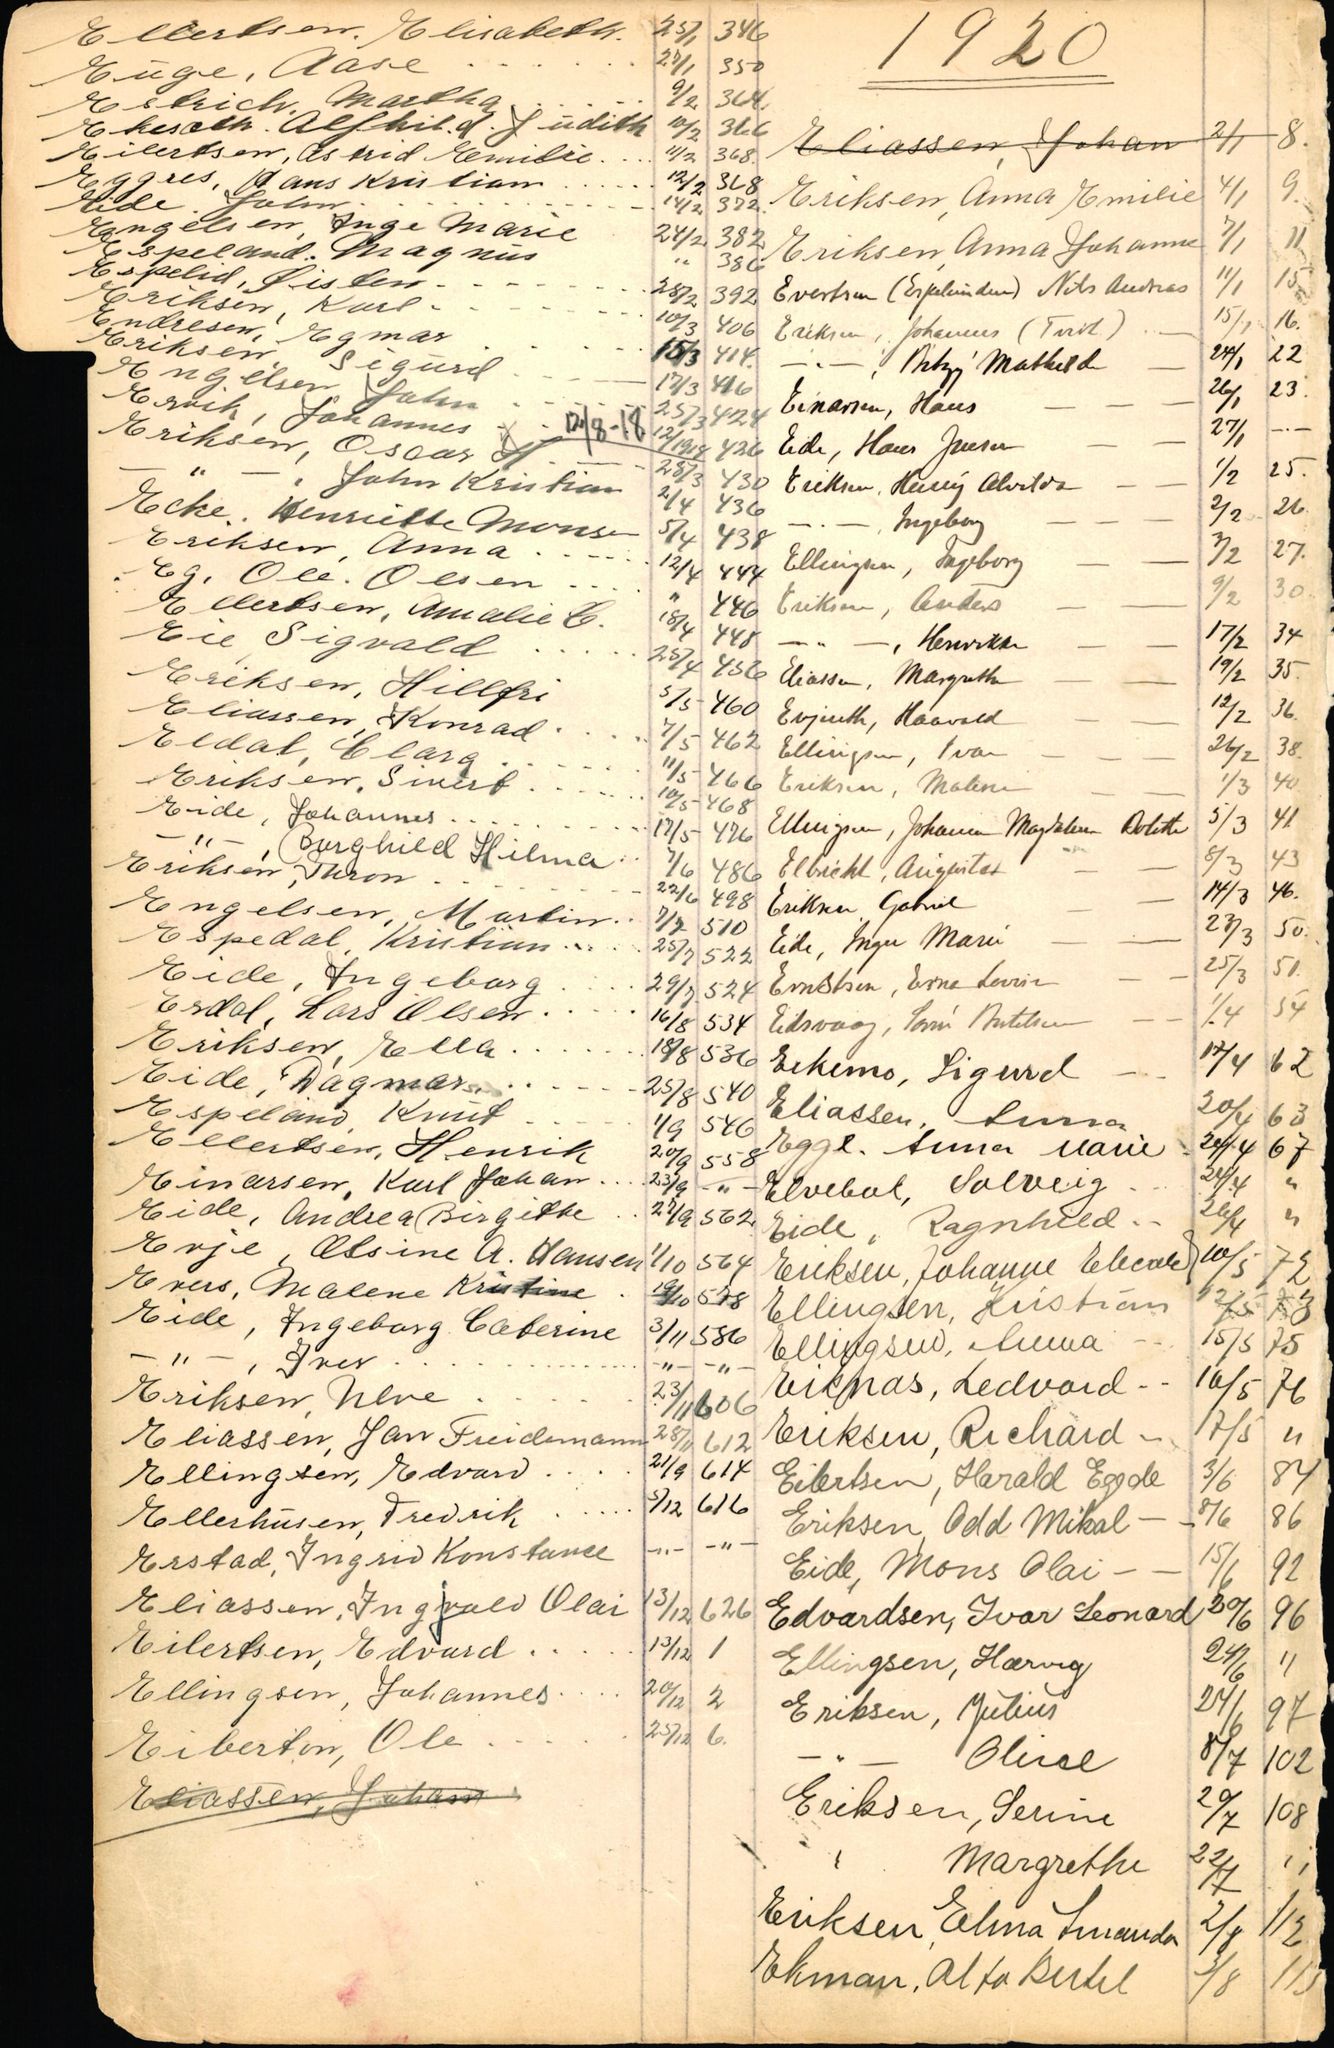 Ellertsen, Elisabeth. 25/1 346
Euge, Aase 27/1 350
Estrich, Martha 9/2 364
Alfhild Judith 10/2 366
Eilertsen, Astrid Emilie 11/2 368
Eggres, Hans Kristian 12/2 368
Eide, John 14/2 372
Engelsen, Inge Marie 24/2 382
Espeland. Magnus " 386
Espelid, Listen 28/2 392
Eriksen, Karl 10/3 406
Endresen, Egmar 15/3 414
Eriksen Sigurd 17/3 416
Engelsen John 25/3 424
Ervik, Johannes 12/8-18 12/1918 426
Eriksen, Oscar H 28/3 430
— " — , John Kristian 2/4 436
Ecke. Henriette Monsen 5/4 438
Eriksen, Anna 12/4 444
Eg, Ole. Olsen " 446
Ellertsen, Amalie C. 18/4 448
Eie Sigvald 25/4 456
Eriksen, Hillfri 5/5 460
Eliassen, Konrad 7/5 462
Eldal, Clara 11/5 466
Eriksen, Sivert 10/5 468
Eide, Johannes 17/5 476
— " — , Borghild Hilma 7/6 486
Eriksen, Thron 22/6 498
Engelsen, Martin 7/7 510
Espedal, Kristian 25/7 522
Eide, Ingeborg 29/7 524
Erdal, Lars Olsen 16/8 534
Eriksen, Ella 18/8 536
Eide, Dagmar 25/8 540
Espeland, Knut 1/9 546
Ellertsen, Henrik 20/9 558
Einarsen, Karl Johan 23/9 — " —
Eide, Andrea Birgitte 27/9 562
Evje, Olsine A. Hansen 1/10 564
Evers, Malene Kristine 19/10 578
Eide, Ingeborg Caterine 3/11 586
— " — , Iver — " — — " —
Eriksen, Uleve 23/11 606
Eliassen, Jan Freidemann 28/11 612
Ellingsen, Edvard 21/9 614
Ellerhusen, Fredrik 5/12 616
Erstad, Ingrid Konstance — " — — " —
Eliassen, Ingvald Olai 13/12 626
Eilertsen, Edvard 13/12 1
Ellingsen, Johannes 20/12 2
Eiberton, Ole 25/12 6.
Eliassen, Johan
1920
Eliassen, Johan 2/1 8.
Eriksen, Anna Emilie 4/1 9.
Eriksen, Anna Johanne 7/1 11
Evertsen (Espelunden) Nils Andreas 11/1 15
Eriksen, Johannes 15/1 16.
— " — , Mathilde 24/1 22
Einarsen, Hans 26/1 23.
Eide, Hans Jensen 27/1 — " —
Eriksen, Henry Alvilda 1/2 25.
— " — , Ingeborg 2/2 26
Ellingsen, Ingeborg 3/2 27.
Eriksen, Anders 9/2 30.
— " — , Henrikke 17/2 34
Eliassen, Margrethe 19/2 35.
Evjenth, Haavald 12/2 36.
Ellingsen, Ivar 26/2 38.
Eriksen, Malene 1/3 40
Ellingsen, Johanna Magdalena Dolette 5/3 41
Elbricht, Augusta 8/3 43
Eriksen Gabriel 14/3 46.
Eide, Inger Marie 23/3 50.
Erntsen, Erne Lovise 25/3 51.
Eidsvaag, 1/4 54
Eikemo, Sigurd 17/4 62
Eliassen, Anna 20/4 63
Eggl. Anna Marie 24/4 67
Elvebol, Solveig 24/4 "
Eide, Ragnhild 26/4 "
Eriksen, Johanne 10/5 72
Ellingsen, Kristian 12/5 73
Ellingsen, Anna 15/5 75
Eiknas, Ledvard 16/5 76
Eriksen, Richard 17/5 "
Eilertsen, Harald Eggde 3/6 84
Eriksen, Odd Mikal 8/6 86
Eide, Mons Olai 15/6 92
Edvardsen, Ivar Leonard 20/6 96
Ellingsen, Hærvig 24/6 "
Eriksen, Julius 24/6 97
— " — Olive 8/7 102
Eriksen, Serine 20/7 108
" Margrethe 22/7 "
Eriksen, Elma Amanda 2/8 112
Ekman, Alfa Bertel 3/8 113